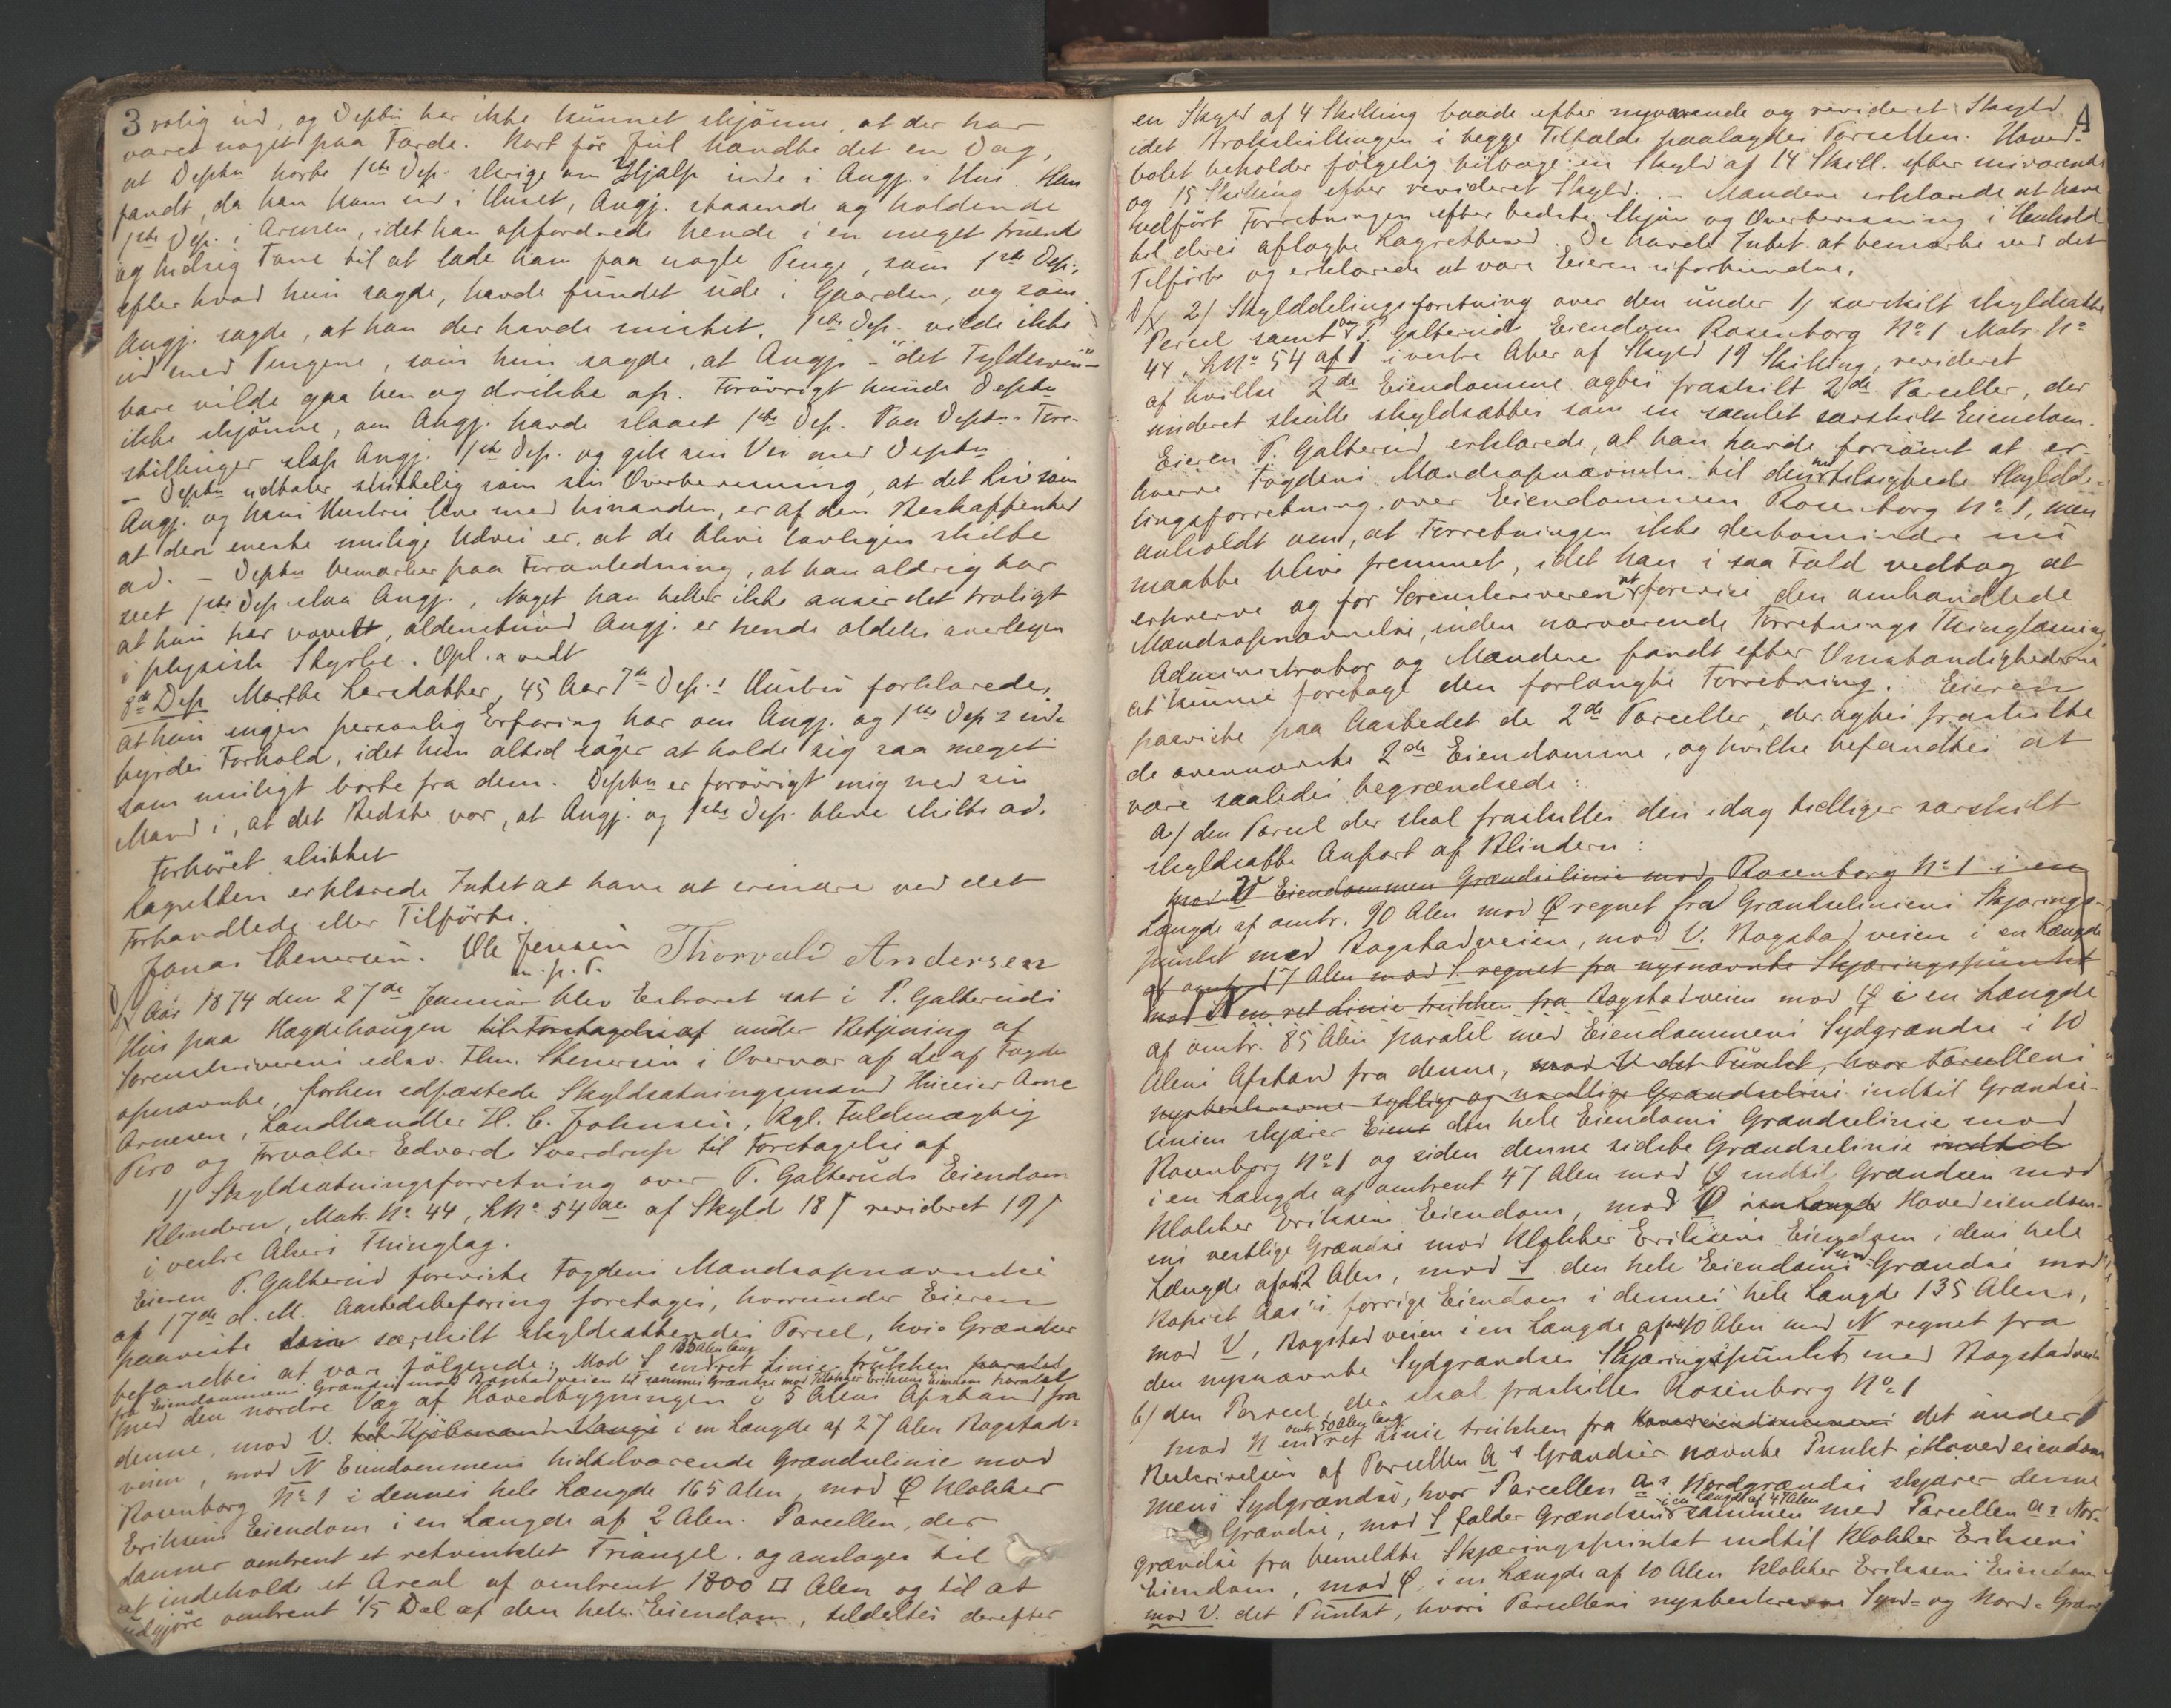 3
rolig ud, og Deptn har ikke kunnet skjönne, at der har
været noget paa Færde. Kort för Jul hændte det en Dag,
at Deptn hørte 1ste Dep. skrige om Hjælp inde i Angj.s Hus. Han
fandt, da han kom ind i Huset, Angj. staaende og holdende
1ste Dep. i Armen, idet han opfordrede hende i en meget truende
og hidsig Tone til at lade ham faa nogle Penge, som 1ste Dep.,
efter hvad hun sagde, havde fundet ude i Gaarden, og som
Angj. sagde, at han der havde mistet. 1ste Dep. vilde ikke
ud med Pengene, som hun sagde, at Angj. - "det Fyldesvin" -
bare vilde gaa hen og drikke op. Forövrigt kunde Deptn
ikke skjönne, om Angj. havde slaaet 1ste Dep. Paa Deptns Fore-
stillinger slap Angj. 1ste Dep. og gik sin Vei med Deptn
- Deptn udtaler sluttelig som sin Overbevisning, at det Liv som
Angj. og hans Hustru leve med hinanden, er af den Beskaffenhed
at den eneste mulige Udvei er, at de blive lovligen skilte
ad. - Deptn bemærker paa Foranledning, at han aldrig har
seet 1ste Dep. slaa Angj., Noget han heller ikke anser det troligt
at hun har vovet, aldenstund Angj. er hende aldeles overlegen
i physisk Styrke. Opl. & vedt.
8de Dep. Marthe Larsdatter, 45 Aar 7de Dep.s Hustru forklarede,
at hun ingen personlig Erfaring har om Angj. og 1ste Dep.s ind-
byrdes Forhold, idet hun altid söger at holde sig saa meget
som muligt borte fra dem. Deptn er forövrigt enig med sin
Mand i, at det Bedste var, at Angj. og 1ste Dep. bleve skilte ad.
Forhöret sluttet
Lagretten erklærede Intet at have at erindre ved det
Forhandlede eller Tilförte.
Jonas Stenersen. Ole Jensen Thorvald Andersen
m. p. P.
Aar 1874 den 27de Januar blev Extraret sat i P. Galteruds
Hus paa Hægdehaugen til Foretagelse af under Betjening af
Sorenskriverens edsv. Fhm. Stenersen i Overvær af de af Fogden
opnævnte, forhen edfæstede Skyldsætningsmænd Huseier Arne
Arnesen, Landhandler H. C. Johnsen, Kgl. Fuldmægtig
Piro og Forvalter Edvard Sverdrup til Foretagelse af
1) Skyldsætningsforretning over P. Galteruds Eiendom
Blindern, Matr. No 44, LNo 54 ae af Skyld 18 ß revideret 19 ß
i vestre Akers Thinglag.
Eieren P. Galterud foreviste Fogdens Mandsopnævnelse
af 17de d. M. Aastedsbefaring foretoges, hvorunder Eieren
paaviste den særskilt skyldsættendes Parcel, hvis Grændser
befandtes at være fölgende: Mod S en 135 Alen lang ret Linie trukken parallel
fra Eiendommens Grændse mod Bogstadveien til sammes Grændse mod Klokker Eriksens Eiendom parallel
med den nordre Væg af Hovedbygningen i 5 Alens Afstand fra
denne, mod V. i en Længde af 27 Alen Bogstad-
veien, mod N Eiendommens hidtilværende Grændselinie mod
Rosenborg No 1 i dennes hele Længde 165 Alen, mod Ø Klokker
Eriksens Eiendom i en Længde af 2 Alen. Parcellen, der
danner omtrent et retvinklet Triangel og antages til
at indeholde et Areal af omtrent 1800 □ Alen og til at
udgjöre omtrent 1/5 Del af den hele Eiendom, tildeltes derefter
4
en Skyld af 4 Skilling baade efter nuværende og revideret Skyld
idet Brökskillingen i begge Tilfælde paalagdes Parcellen. Hoved-
bölet beholder fölgelig tilbage en Skyld af 14 Skill. efter nuværende
og 15 Skilling efter revideret Skyld. - Mændene erklærede at have
udfört Forretningen efter bedste Skjön og Overbevisning i Henhold
til deres aflagte Lagretteed. De havde Intet at bemærke ved det
Tilförte og erklærede at være Eieren uforbundne.
2) Skylddelingsforretning over den under 1) særskilt skyldsatte
Parcel samt over P. Galteruds Eiendom Rosenborg No 1 Matr. No
44, LNo 54 af 1 i vestre Aker af Skyld 19 Skilling, revideret
af hvilke 2de Eiendomme agtes fraskilt 2de Parceller, der
skulle skyldsættes som en samlet særskilt Eiendom.
Eieren P. Galterud erklærede, at han havde forsömt at er-
hverve Fogdens Mandsopnævnelse til den nu tilsigtede Skyldde-
lingsforretning over Eiendommen Rosenborg No 1, men
anholdt om, at Forretningen ikke destomindre nu
maatte blive fremmet, idet han i saa Fald vedtog at
erhverve og for Sorenskriveren at forevise den omhandlede
Mandsopnævnelse, inden nærværende Forretnings Thinglæsning
Administrator og Mændene fandt efter Omstændighederne
at kunne foretage den forlangte Forretning. Eieren
paaviste paa Aastedet de 2de Parceller, der agtes fraskilte
de ovennævnte 2de Eiendomme, og hvilke befandtes at
være saaledes begrændsede:
a) den Parcel der skal fraskilles den idag tidligere særskilt
skyldsatte Anpart af Blindern:
mod N Eiendommen Grændselinie mod Rosenborg No 1 i en
Længde af omtr. 90 Alen mod Ø regnet fra Grændseliniens Skjærings-
punkt med Bogstadveien, mod V. Bogstadveien i en Længde
af omtrent 17 Alen mod S. regnet fra nysnævnte Skjæringspunkt
mod N en ret Linie trukken fra Bogstadveien mod Ø i en Længde
af omtr. 85 Alen parallel med Eiendommens Sydgrændse i 10
Alens Afstand fra denne, mod V. det Punkt, hvor Parcellens
nysbeskrevne sydlige og nordlige Grændselinie indtil Grændse-
linien skjærer Eiend den hele Eiendoms Grændselinie mod
Rosenborg No 1 og siden denne sidste Grændselinie indtil
i en Længde af omtrent 47 Alen mod Ø indtil Grændsen mod
Klokker Eriksens Eiendom, mod Ø i en Længde Hovedeiendom-
ens vestlige Grændse mod Klokker Eriksens Eiendom i dens hele
Længde af omtr. 2 Alen, mod S den hele Eiendoms Sydgrændse mod
Kopist Aas's forrige Eiendom i dennes hele Længde 135 Alen,
mod V, Bogstadveien i en Længde af omtr. 10 Alen mod N regnet fra
den nysnævnte Sydgrændses Skjæringspunkt med Bogstadveien
b) den Parcel, der skal fraskilles Rosenborg No 1
mod N en omtr. 50 Alen lang ret Linie trukken fra Hovedeiendommens det under
Beskrivelsen af Parcellen a's Grændser nævnte Punkt i Hovedeiendom-
mens Sydgrændse, hvor Parcellen a's Nordgrændse skjærer denne
Grændse, mod S falder Grændsen i en Længde af 47 Alen sammen med Parcellen a's Nor-
grændse fra bemeldte Skjæringspunkt indtil Klokker Eriksens
Eiendom, mod Ø, i en Længde af 10 Alen Klokker Eriksens Eiendom
mod V. det Punkt, hvori Parcellens nysbeskrevne Syd- og Nord-Græn